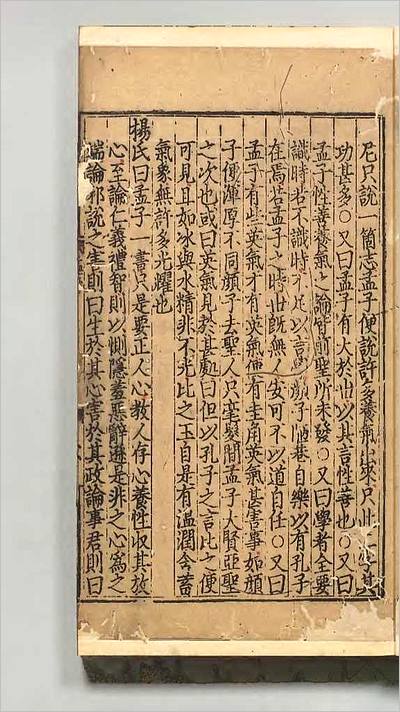 尼只說一箇志孟子便說許多養氣出來只此二字其
功甚多○又曰孟子有大於世以其言性善也○又曰
孟子性善養氣之論皆前聖所未發○又曰學者全要
識時若不識時不足以言學顏子陋巷自樂以有孔子
在焉若孟子之時世旣無人安可不以道自任○又曰
孟子有些英氣才有英氣便有圭角英氣甚害事如顏
子便渾厚不同顏子去聖人只毫髮間孟子大賢亞聖
之次也或曰英氣見於甚處曰但以孔子之言比之便
可見且如冰與水精非不光比之玉自是有溫潤含蓄
氣象無許多光耀也
楊氏曰孟子一書只是要正人心教人存心養性收其放
心至論仁義禮智則以惻隱羞惡辭遜是非之心爲之
端論邪說之害則曰生於其心害於其政論事君則曰